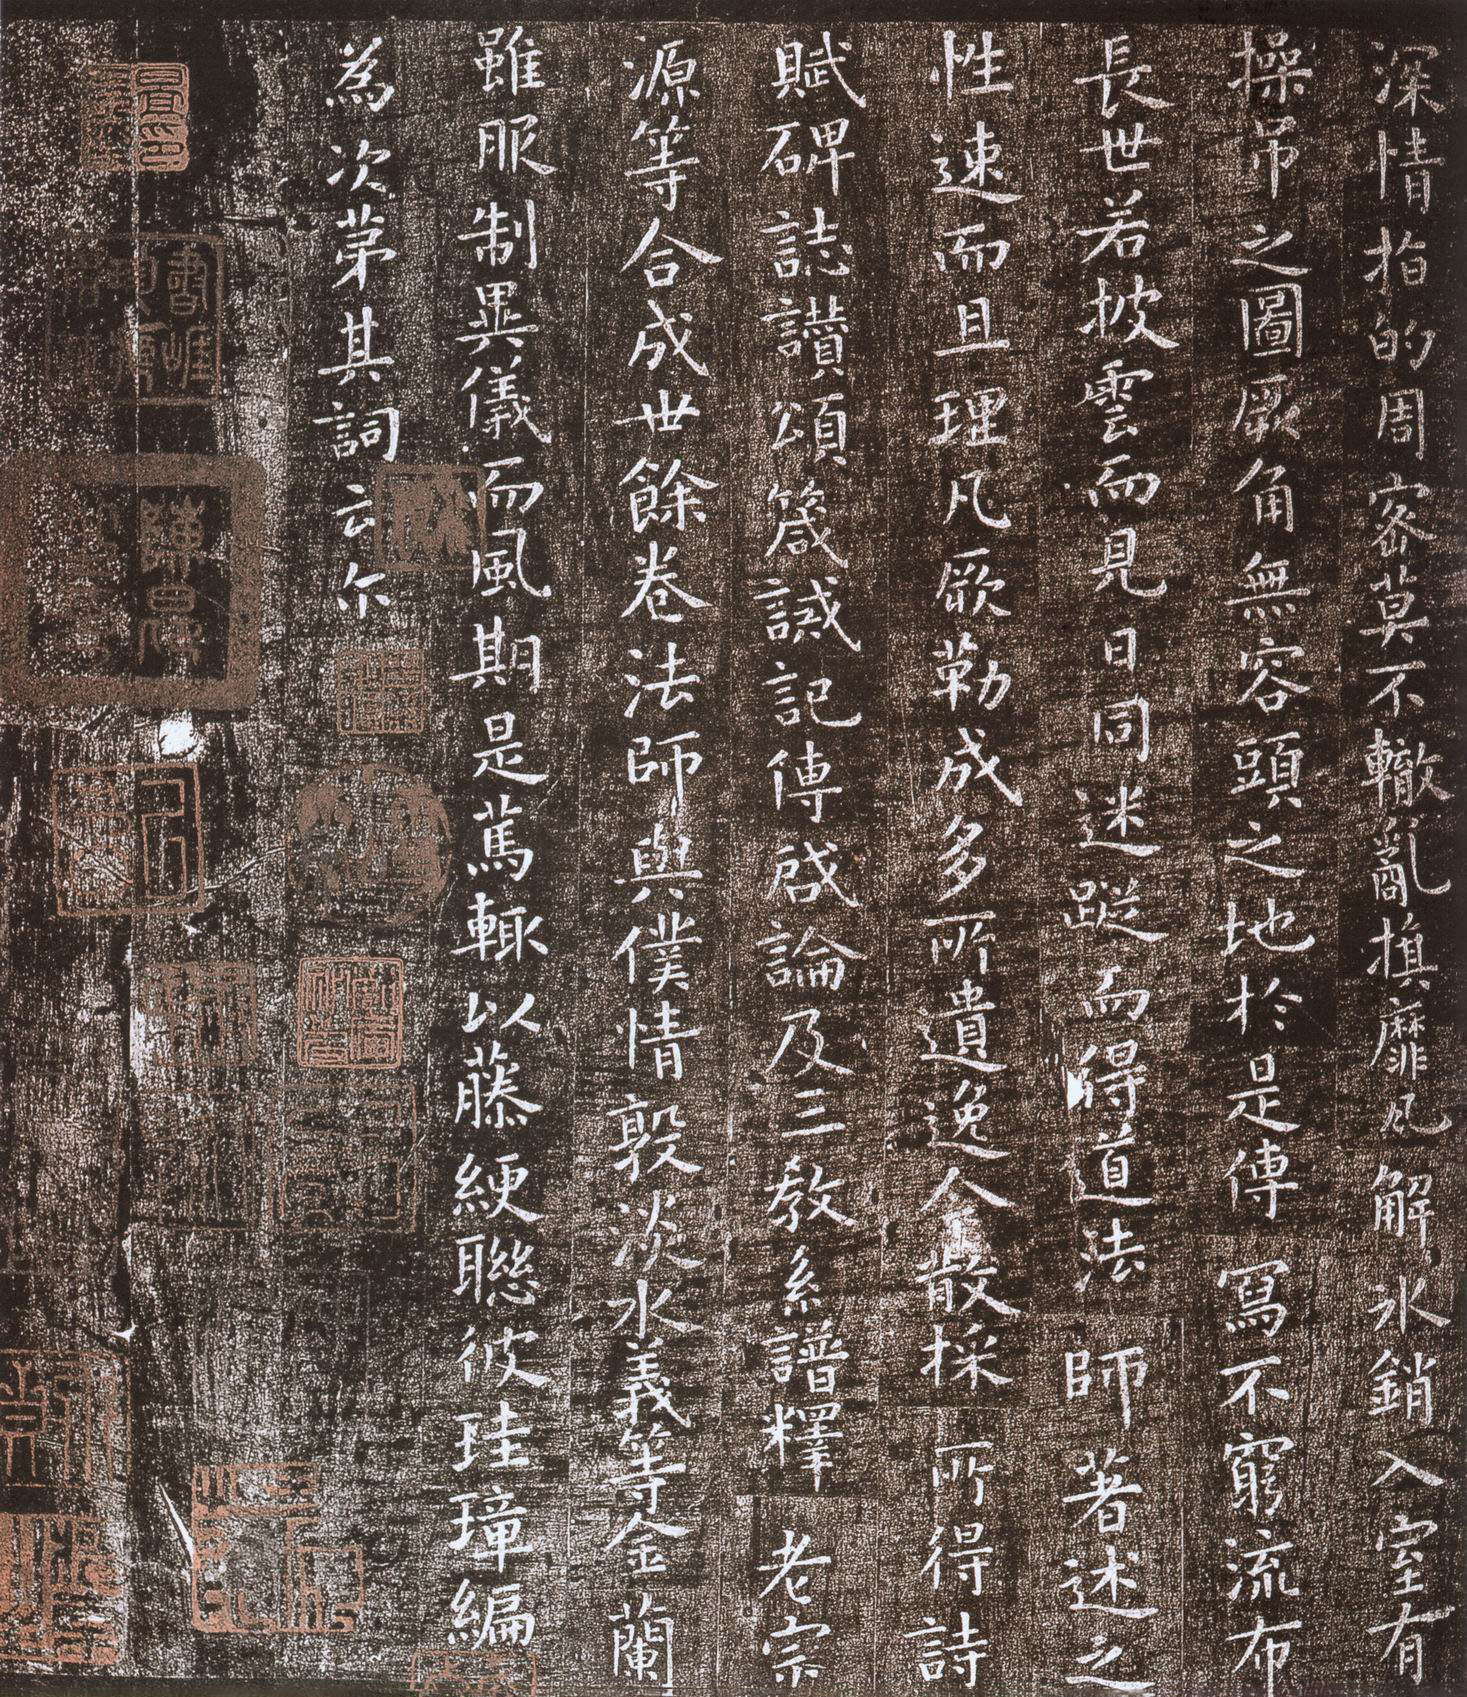 深情指的周密莫不轍亂旗靡凡解氷銷入室有
操吊之圖厥角無容頭之地於是傳寫不窮流布
長世若披雲而見日同迷蹤而得道法師著述之
性速而且理凡厥勒成多所遺逸今散採所得詩
賦碑誌讚頌箴誡記傳啟論及三教系譜釋老宗
源等合成卅餘卷法師與僕情敦淡水義等金蘭
雖服制異儀而風期是篤輒以藤綆聯彼珪璋編
為次第其詞云尒